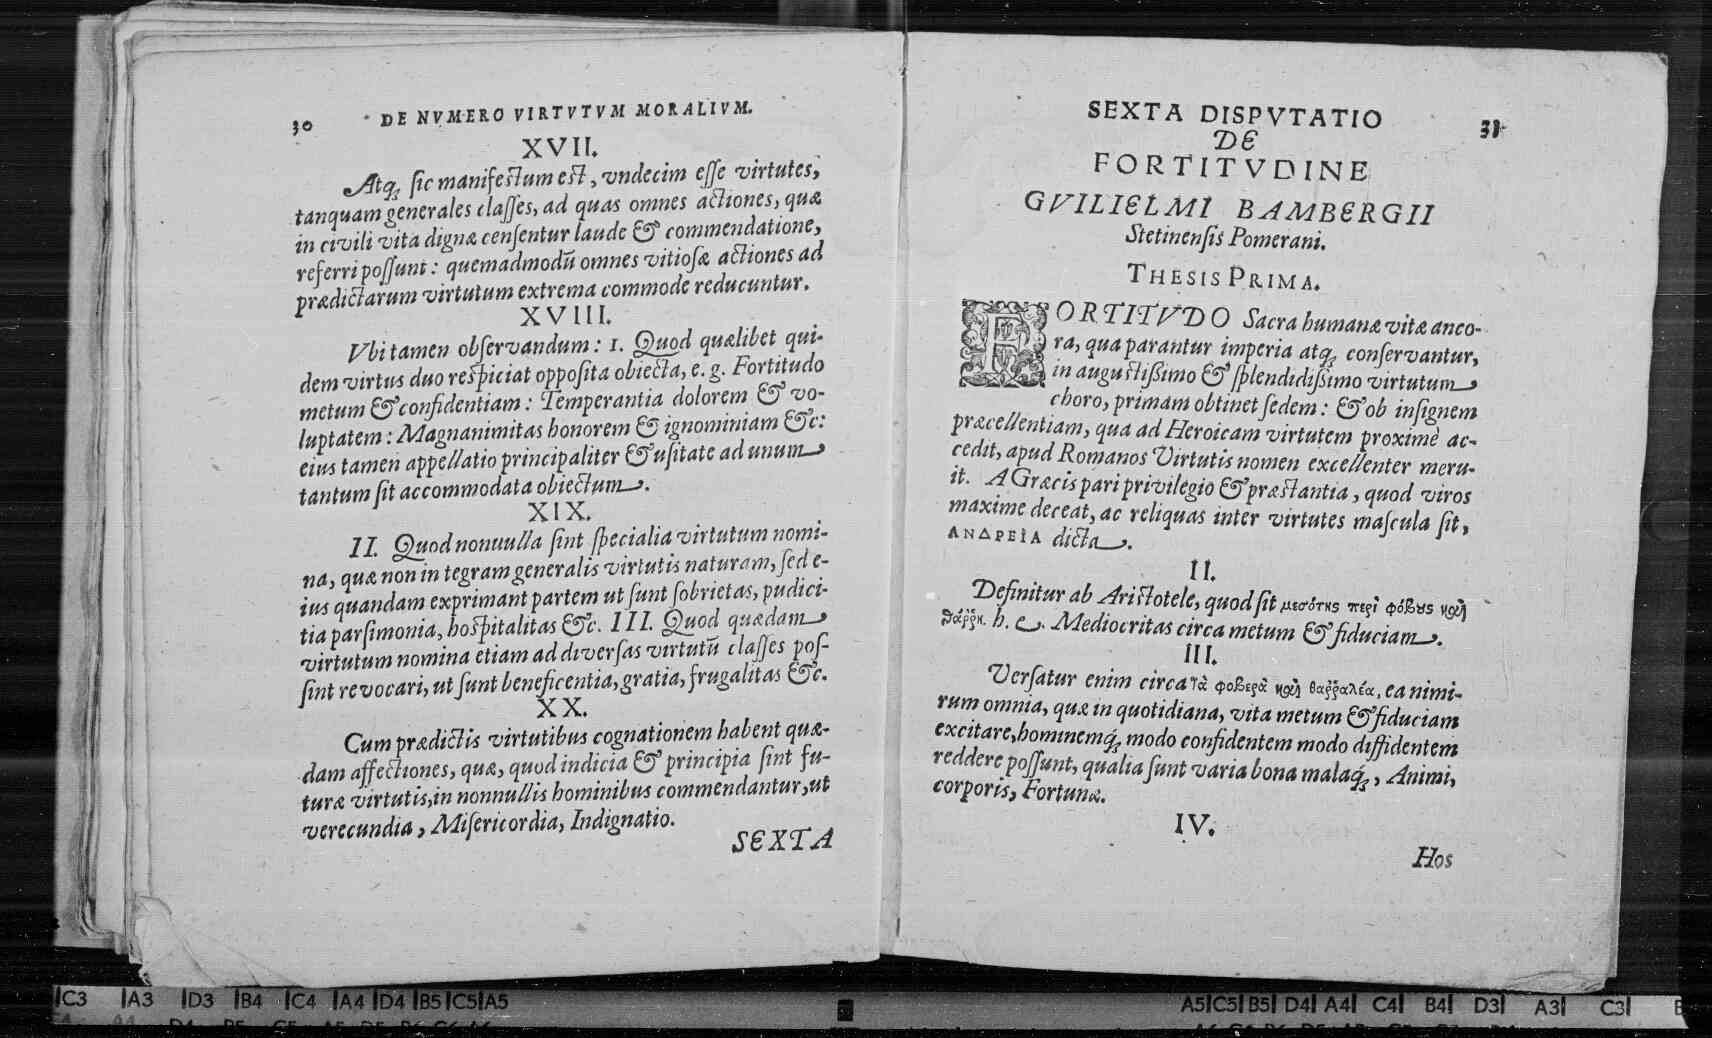 30 DE NVMERO VIRTVTVM MORALIVM.
XVII.
Atq; ſic manifeſtum eſt, vndecim eſſe virtutes,
tanquam generales claſſes, ad quas omnes actiones, quæ
in civili vita dignæ cenſentur laude & commendatione,
referri poſſunt: quemadmodũ omnes vitioſæ actiones ad
prædictarum virtutum extrema commode reducuntur.
XVIII.
Vbi tamen obſervandum: 1. Quod quælibet qui-
dem virtus duo reſpiciat oppoſita obiecta, e. g. Fortitudo
metum & confidentiam: Temperantia dolorem & vo-
luptatem: Magnanimitas honorem & ignominiam &c:
eius tamen appellatio principaliter & uſitate ad unum
tantum ſit accommodata obiectum.
XIX.
II. Quod nonuulla ſint ſpecialia virtutum nomi-
na, quæ non in tegram generalis virtutis naturam, ſed e-
ius quandam exprimant partem ut ſunt ſobrietas, pudici-
tia parſimonia, hoſpitalitas &c. III. Quod quædam
virtutum nomina etiam ad diverſas virtutũ claſſes poſ-
ſint revocari, ut ſunt beneficentia, gratia, frugalitas &c.
XX.
Cum prædictis virtutibus cognationem habent quæ-
dam affectiones, quæ, quod indicia & principia ſint fu-
turæ virtutis, in nonnullis hominibus commendantur, ut
verecundia, Miſericordia, Indignatio.
SEXTA
SEXTA DISPVTATIO 31
DE
FORTITVDINE
GVILIELMI BAMBERGII
Stetinenſis Pomerani.
THESIS PRIMA.
FORTITVDO Sacra humanæ vitæ anco-
ra, qua parantur imperia atq; conſervantur,
in auguſtiſſimo & ſplendidiſſimo virtutum
choro, primam obtinet ſedem: & ob inſignem
præcellentiam, qua ad Heroicam virtutem proximè ac-
cedit, apud Romanos Virtutis nomen excellenter meru-
it. A Græcis pari privilegio & præſtantia, quod viros
maxime deceat, ac reliquas inter virtutes maſcula ſit,
ΑΝΔΡΕΙΑ dicta.
II.
Definitur ab Ariſtotele, quod ſit μεσότης περὶ φόβους καὶ
θάῤῥη. h. e. Mediocritas circa metum & fiduciam.
III.
Verſatur enim circa τὰ φοβερὰ καὶ θαῤῥαλέα, ea nimi-
rum omnia, quæ in quotidiana, vita metum & fiduciam
excitare, hominemq́; modo confidentem modo diffidentem
reddere poſſunt, qualia ſunt varia bona malaq́;, Animi,
corporis, Fortunæ.
IV.
Hos
C3 A3 D3 B4 C4 A4 D4 B5 C5 A5
A5 C5 B5 D4 A4 C4 B4 D3 A3 C3